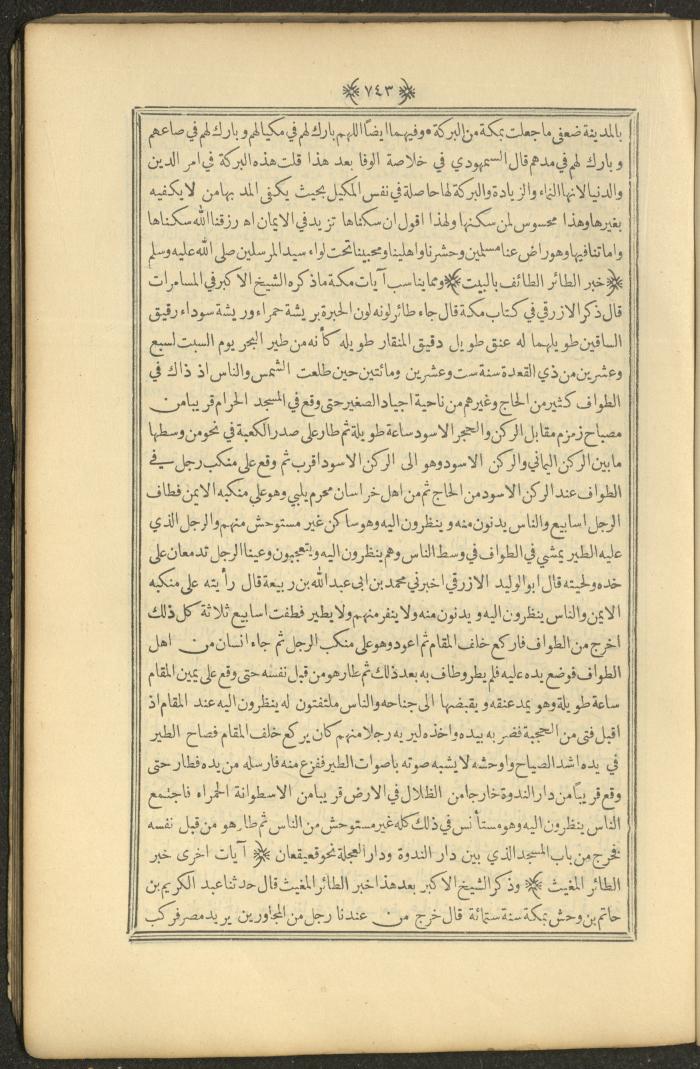 ٧٤٣
بالمدينة ضعفى ما جعلت بمكة من البركة • وفيهما ايضاً اللهم بارك لهم في مكيالهم وبارك لهم في صاعهم
وبارك لهم في مدهم قال السمهودي في خلاصة الوفا بعد هذا قلت هذه البركة في امر الدين
والدنيا لانها النماء والزيادة والبركة لها حاصلة في نفس المكيل بحيث يكفى المد بها من لا يكفيه
بغيرها وهذا محسوس لمن سكنها ولهذا اقول ان سكناها تزيد في الايمان اه رزقنا الله سكناها
واماتنا فيها وهو راض عنا مسلمين وحشرنا واهلينا ومحبينا تحت لواء سيد المرسلين صلى الله عليه وسلم
﴿خبر الطائر الطائف بالبيت﴾ ومما يناسب آيات مكة ما ذكره الشيخ الاكبر في المسامرات
قال ذكر الازرقي في كتاب مكة قال جاء طائر لونه لون الحبرة بريشة حمراء وريشة سوداء رقيق
الساقين طويلهما له عنق طويل دقيق المنقار طويله كأنه من طير البحر يوم السبت لسبع
وعشرين من ذي القعدة سنة ست وعشرين ومائتين حين طلعت الشمس والناس اذ ذاك في
الطواف كثير من الحاج وغيرهم من ناحية اجياد الصغير حتى وقع في المسجد الحرام قريبا من
مصباح زمزم مقابل الركن والحجر الاسود ساعة طويلة ثم طار على صدر الكعبة في نحو من وسطها
ما بين الركن اليماني والركن الاسود وهو الى الركن الاسود اقرب ثم وقع على منكب رجل في
الطواف عند الركن الاسود من الحاج ثم من اهل خراسان محرم يلبي وهو على منكبه الايمن فطاف
الرجل اسابيع والناس يدنون منه وينظرون اليه وهو ساكن غير مستوحش منهم والرجل الذي
عليه الطير يمشي في الطواف في وسط الناس وهم ينظرون اليه ويتعجبون وعينا الرجل تدمعان على
خده ولحيته قال ابو الوليد الازرقي اخبرني محمد بن ابى عبد الله بن ربيعة قال رأيته على منكبه
الايمن والناس ينظرون اليه ويدنون منه ولا ينفر منهم ولا يطير فطفت اسابيع ثلاثة كل ذلك
اخرج من الطواف فاركع خلف المقام ثم اعود وهو على منكب الرجل ثم جاء انسان من اهل
الطواف فوضع يده عليه فلم يطر وطاف به بعد ذلك ثم طار هو من قبل نفسه حتى وقع على يمين المقام
ساعة طويلة وهو يمد عنقه ويقبضها الى جناحه والناس ملتفتون له ينظرون اليه عند المقام اذ
اقبل فتى من الحجبة فضر به بيده واخذه لير يه رجلا منهم كان يركع خلف المقام فصاح الطير
في يده اشد الصياح واوحشه لا يشبه صوته باصوات الطير ففزع منه فارسله من يده فطار حتى
وقع قريباً من دار الندوة خارجا من الظلال في الارض قريبا من الاسطوانة الحمراء فاجتمع
الناس ينظرون اليه وهو مستأنس في ذلك كله غير مستوحش من الناس ثم طار هو من قبل نفسه
فخرج من باب المسجد الذي بين دار الندوة ودار العجلة نحو قعيقعان ﴿ آيات اخرى خبر
الطائر المغيث ﴾ وذكر الشيخ الاكبر بعد هذا خبر الطائر المغيث قال حدثنا عبد الكريم بن
حاتم بن وحش بمكة سنة ستمائة قال خرج من عندنا رجل من المجاورين يريد مصر فركب